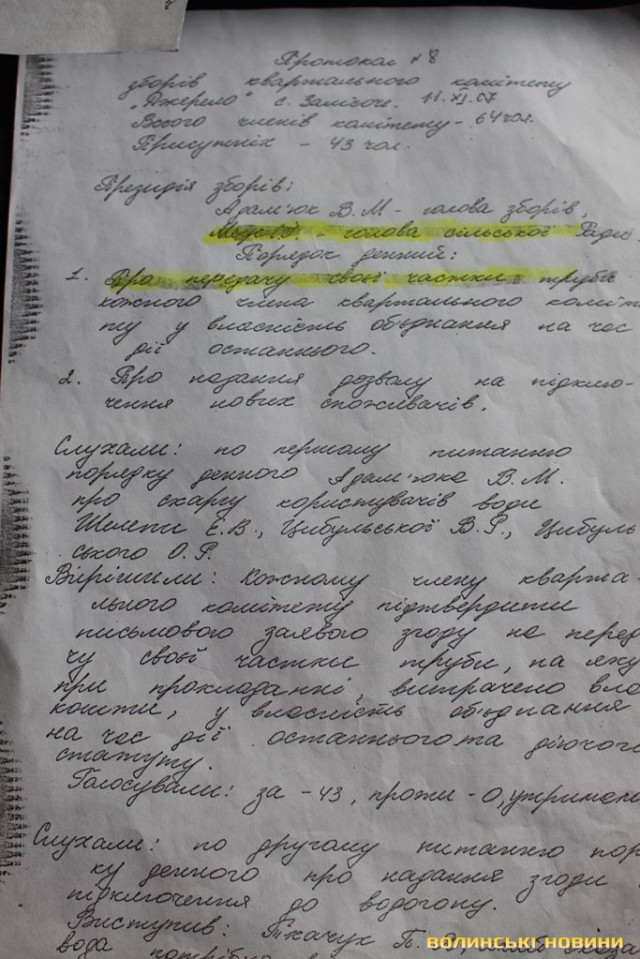 Протокол №8
зборів квартального комітету
"Джерело" с. Залізоче. 11.XI.07
Всього членів комітету - 64 чол.
Присутніх - 43 чол.
Президія зборів:
Адам'юк В.М - голова зборів,
- голова сільської Ради.
Порядок денний:
1. Про передачу своєї частки труби
кожного члена квартального коміте
ту у власність об'єднання на час
дії останнього.
2. Про надання дозволу на підклю-
чення нових споживачів.
Слухали: по першому питанню
порядку денного Адам'юка В.М.
про скаргу користувачів води
Шепети Є.В., Цибульської В.Р., Цибуль
ського О.Р.
Вирішили: кожному члену кварта-
льного комітету підтвердити
письмовою заявою згоду на перед
чу своєї частки труби, на яку
при прокладанні, витрачено вла
кошти, у власність об'єднання
на час дії останнього та діючого
статуту.
Голосували: за - 43, проти - 0, утримали
Слухали: по другому питанню поря
ку денного про надання згоди
підключення до водогону.
Виступив: Ткачук П.
вода потрібна
ВОЛИНСЬКІ НОВИНИ